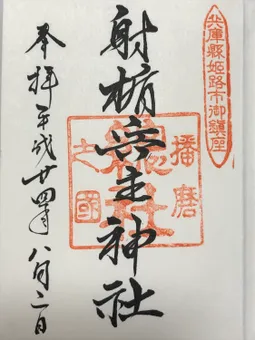 兵庫縣姫路市御鎮座
射楯兵主神社
播磨
之國
總社
奉拝 平成廿四年八月二日